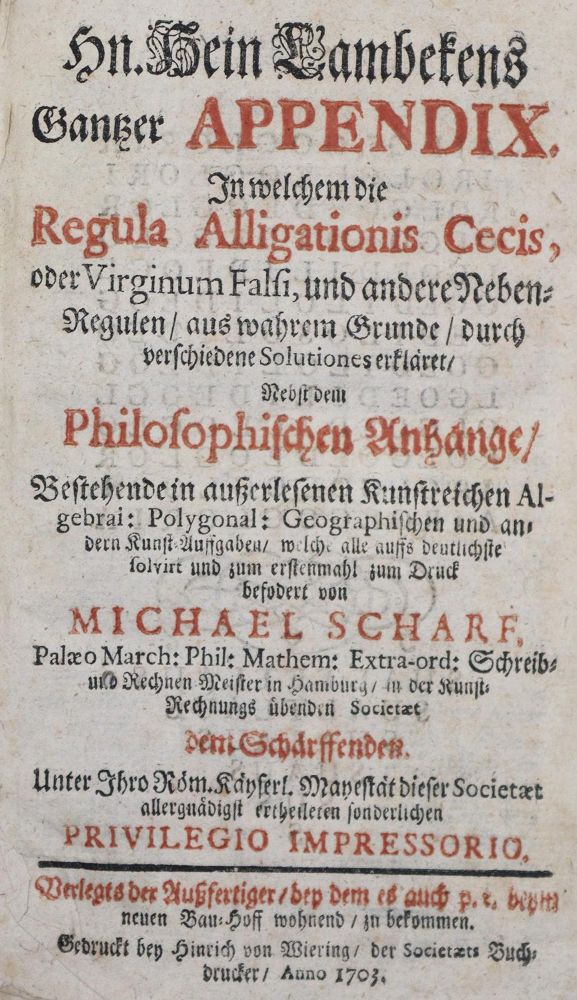 Hn. Hein Lambekens
Gantzer APPENDIX.
In welchem die
Regula Alligationis Cecis,
oder Virginum Falsi, und andere Neben-
Regulen / aus wahrem Grunde / durch
verschiedene Solutiones erkläret /
Nebst dem
Philosophischen Anhange /
Bestehende in außerlesenen Kunstreichen Al-
gebrai: Polygonal: Geographischen und an-
dern Kunst-Auffgaben / welche alle auffs deutlichste
solvirt und zum erstenmahl zum Druck
befodert von
MICHAEL SCHARF,
Palæo March: Phil: Mathem: Extra-ord: Schreib-
und Rechnen Meister in Hamburg / in der Kunst-
Rechnungs übenden Societæt
dem Schärffenden.
Unter Ihro Röm. Käyserl. Mayestät dieser Societæt
allergnädigst ertheileten sonderlichen
PRIVILEGIO IMPRESSORIO.
Verlegts der Außfertiger / bey dem es auch p. t. beym
neuen Bau-Hoff wohnend / zu bekommen.
Gedruckt bey Hinrich von Wiering / der Societæts Buch-
drucker / Anno 1703.